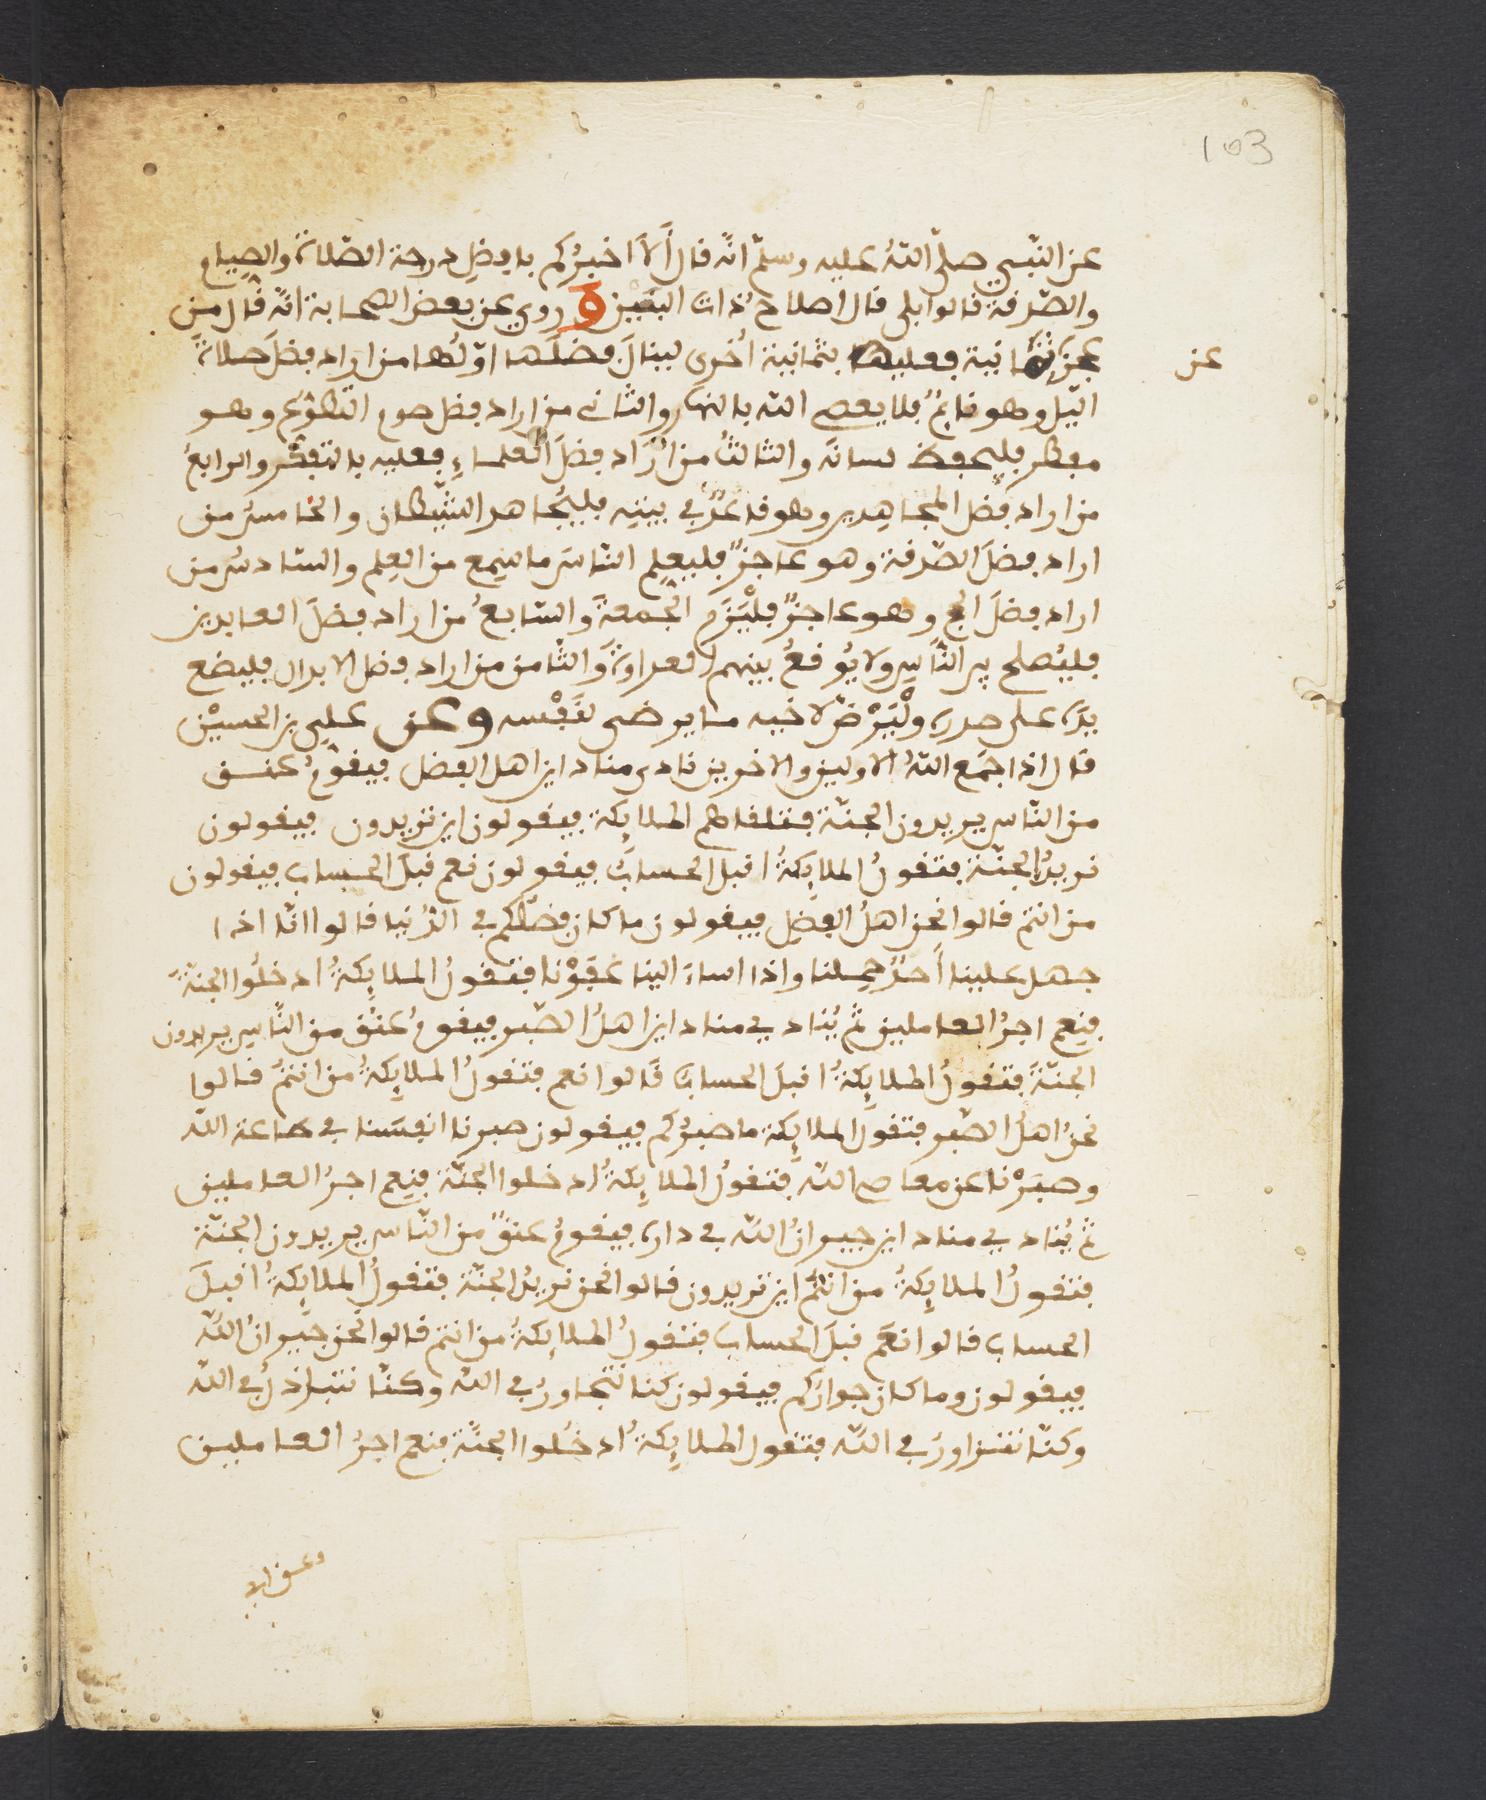 103
عن النّبي صلّى اللّهُ عليه وسلّم انّه قال أَلاَ اخبرُكم بافضلِ درجة الصّلاة والصيام
والصّدقة قالوا بلى قال اصلاح ذات البَيْن وروي عن بعض الصحابة انّه قال من
عجز عن ثمانية فعليه بثمانية اُخرى لينالَ فضلَها اوّلُها من اراد فضلَ صلاة
عن
اليّل وهو نايمٌ فلا يعص اللّه بالنهار والثاني من اراد فضل صوم التطوُّع وهو
مفطر فليحفظ لسانَه والثالثُ من اراد فضلَ العلماءِ فعليه بالتفكّر والرابعُ
من اراد فضل المجاهِدين وهو قاعدٌ في بيتِه فليُجاهد الشّيطان والخامسُ من
اراد فضلَ الصّدقة وهو عاجزٌ فليعلم النّاسَ ما سمِع من العِلم والسّادسُ من
اراد فضلَ الحج وهو عاجزٌ فلْيَلْزَمِ الجُمعةَ والسّابعُ من اراد فضلَ العابدين
فليُصلح بين النّاسِ ولا يُوقعُ بينهم العداوةَ والثّامن من اراد فضل الابدال فليضع
يدَه على صدره ولْيَرْضَ لاخيه ما يرضى لنَفْسه وعن علي بن الحسيْن
قال اذا جمَع اللّهُ الاولين والاخرين نادى مناد اين اهل الفضل فيقومُ عنق
من النّاس يريدون الجنّة فتلقاهم الملايِكة فيقولون اين تريدون فيقولون
نريدُ الجنّة فتقولُ الملايِكةُ اقبل الحساب فيقولون نعم قبلَ الحساب فيقولون
من انتم قالوا نحن اهلُ الفضلِ فيقولون ما كان فضلُكم في الدُنيا قالوا انّا اذا
جهل علينا أَحدٌ حمِلنا واذا اساءَ الينا عَفَوْنا فتقولُ الملايِكةُ ادخلُوا الجنّةَ
فنِعم اجرُ العاملين ثم يُنادي مناد اين اهلُ الصّبر فيقومُ عنُق من النّاسِ يريدون
الجنّةَ فتقولُ الملايكةُ اقبلَ الحساب قالوا نعم فتقولُ الملايِكةُ من انتمُ قالوا
نحنُ اهلُ الصّبر فتقولُ الملايِكة ما صبرُكم فيقولون صبرنا انفسَنا في طاعة اللّه
وصبَرْنا عن معاصي اللّه فتقولُ الملايِكةُ ادخلوا الجنّة فنِعم اجرُ العاملين
ثم يُنادي مناد اين جيرانُ اللّه في داره فيقومُ عنقٌ من النّاس يريدون الجنّة
فتقولُ الملايِكةُ من انتم اين تريدون قالوا نحن نريدُ الجنّة فتقولُ الملايكةُ اقبلَ
الحساب قالوا نعَم قبلَ الحساب فتقولُ الملايكةُ من انتم قالوا نحن جيرانُ اللّه
فيقولون وما كان جوارُكم فيقولون كنا نتجاورُ في اللّه وكنّا نتباذلُ في اللّه
وكنّا نتزاورُ في اللّه فتقول الملايِكةُ ادخُلوا الجنّة فنعم اجرُ العاملين
وعن